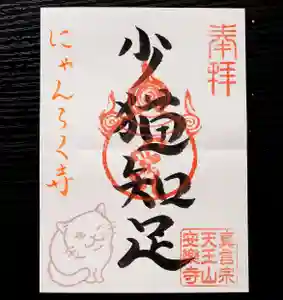 奉拝
少猫知足
にゃんろく寺
真言宗
天王山
安樂寺